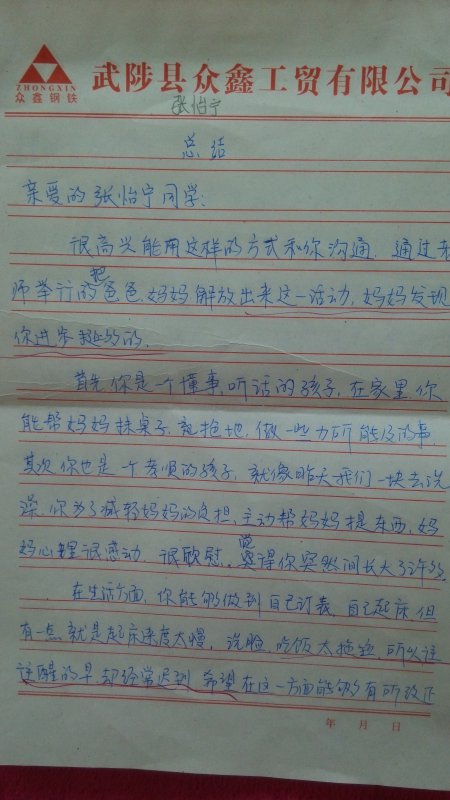 ZHONGXIN
众鑫钢铁
武陟县众鑫工贸有限公司
张怡宁
总结
亲爱的张怡宁同学:
很高兴能用这样的方式和你沟通,通过老
师举行的把爸爸妈妈解放出来这一活动,妈妈发现
你进步挺多的。
首先你是一个懂事,听话的孩子,在家里你
能帮妈妈抹桌子,拖地,做一些力所能及的事,
其次你也是一个孝顺的孩子,就像昨天我们一块去洗
澡,你为了减轻妈妈的负担,主动帮妈妈提东西,妈
妈心里很感动,很欣慰,觉得你突然间长大了许多。
在生活方面,你能够做到自己订表,自己起床,但
有一点就是起床速度太慢,洗脸,吃饭太拖拉,所以往
往醒的早却经常迟到,希望在这一方面能够有所改正
年 月 日